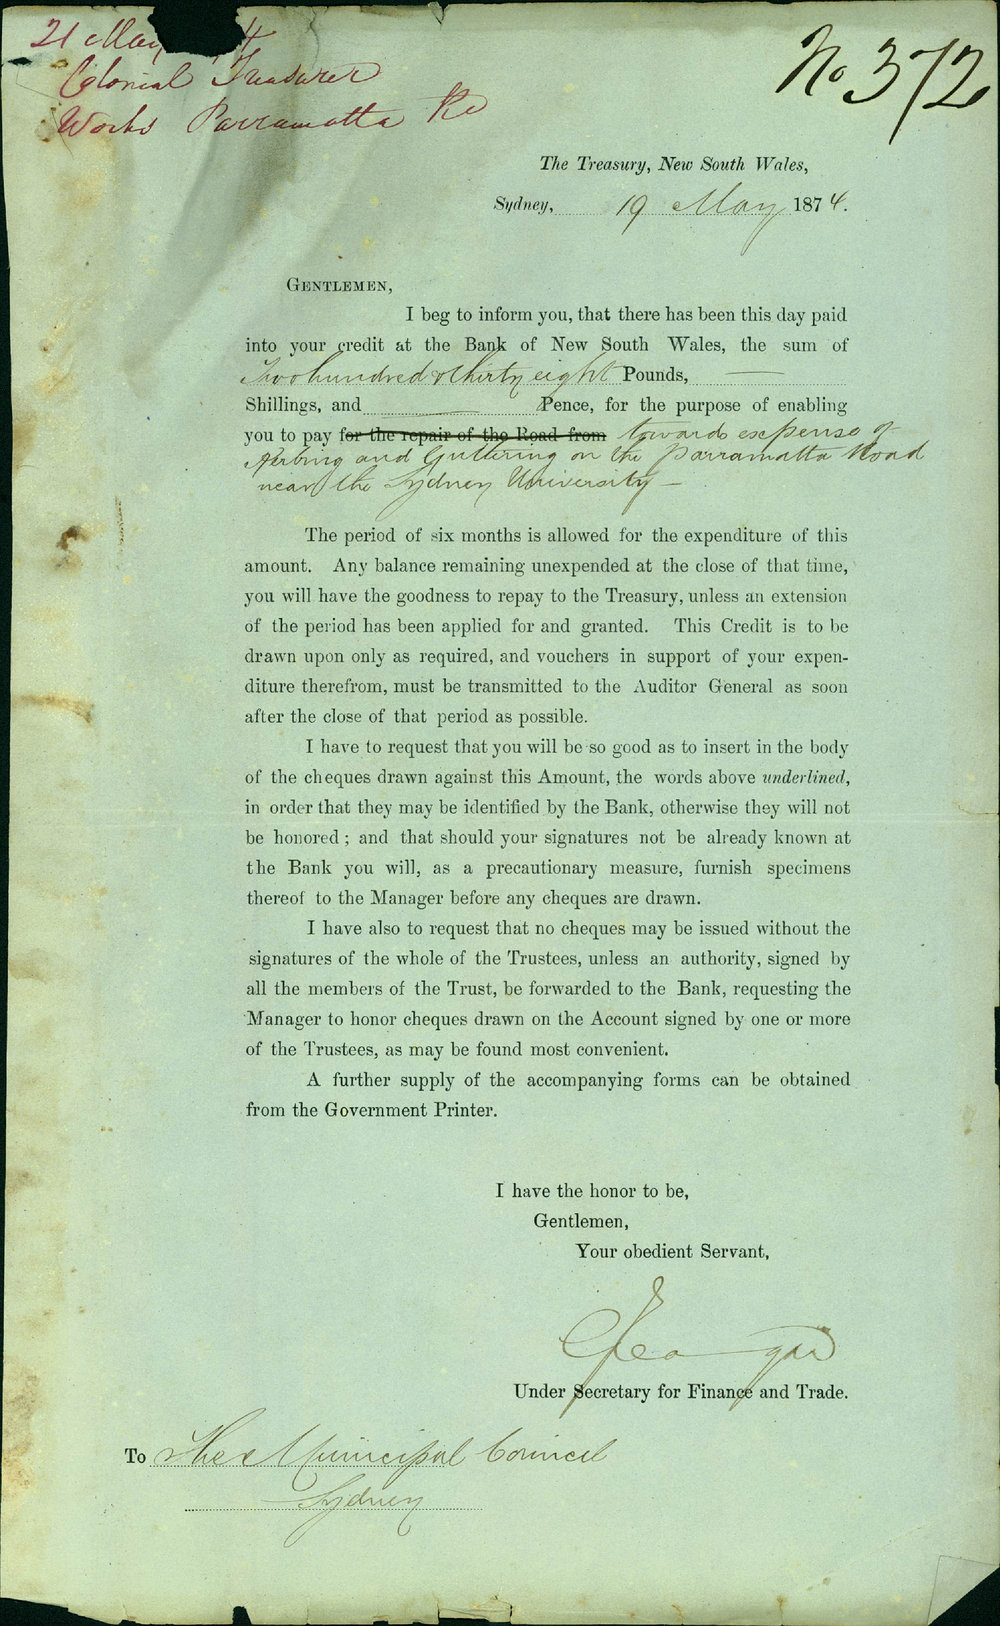 21 May 4
Colonial Treasurer
Works Parramatta Rd
No 372
The Treasury, New South Wales,
Sydney, 19 May 1874.
GENTLEMEN,
I beg to inform you, that there has been this day paid
into your credit at the Bank of New South Wales, the sum of
Two hundred & thirty eight Pounds, —
Shillings, and — Pence, for the purpose of enabling
you to pay for the repair of the Road from towards expense of
Kerbing and Guttering on the Parramatta Road
near the Sydney University —
The period of six months is allowed for the expenditure of this
amount. Any balance remaining unexpended at the close of that time,
you will have the goodness to repay to the Treasury, unless an extension
of the period has been applied for and granted. This Credit is to be
drawn upon only as required, and vouchers in support of your expen-
diture therefrom, must be transmitted to the Auditor General as soon
after the close of that period as possible.
I have to request that you will be so good as to insert in the body
of the cheques drawn against this Amount, the words above underlined,
in order that they may be identified by the Bank, otherwise they will not
be honored; and that should your signatures not be already known at
the Bank you will, as a precautionary measure, furnish specimens
thereof to the Manager before any cheques are drawn.
I have also to request that no cheques may be issued without the
signatures of the whole of the Trustees, unless an authority, signed by
all the members of the Trust, be forwarded to the Bank, requesting the
Manager to honor cheques drawn on the Account signed by one or more
of the Trustees, as may be found most convenient.
A further supply of the accompanying forms can be obtained
from the Government Printer.
I have the honor to be,
Gentlemen,
Your obedient Servant,
Under Secretary for Finance and Trade.
To The Municipal Council
Sydney